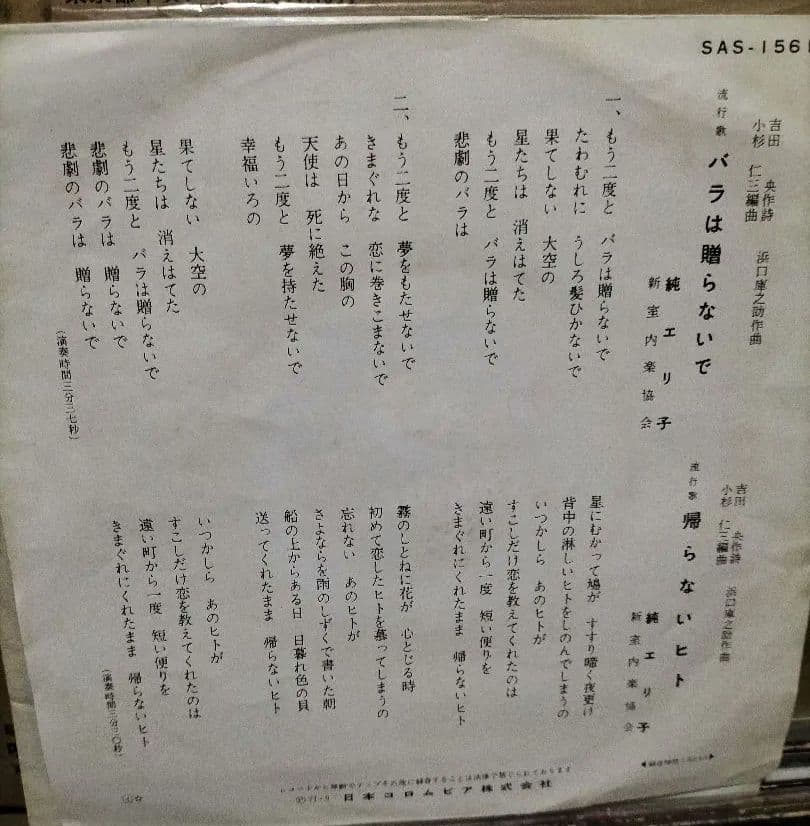 SAS-1561
吉田 央作詩
浜口庫之助作曲
小杉 仁三編曲
流行歌 バラは贈らないで
純 エリ子
新室内楽協会
一、もう二度と バラは贈らないで
たわむれに うしろ髪ひかないで
果てしない 大空の
星たちは 消えはてた
もう二度と バラは贈らないで
悲劇のバラは
二、もう二度と 夢をもたせないで
きまぐれな 恋に巻きこまないで
あの日から この胸の
天使は 死に絶えた
もう二度と 夢を持たせないで
幸福いろの
果てしない 大空の
星たちは 消えはてた
もう二度と バラは贈らないで
悲劇のバラは 贈らないで
悲劇のバラは 贈らないで
(演奏時間三分三七秒)
吉田 央作詩
浜口庫之助作曲
小杉 仁三編曲
流行歌 帰らないヒト
純 エリ子
新室内楽協会
星にむかって鳩が すすり啼く夜更け
背中の淋しいヒトをしのんでしまうの
いつかしら あのヒトが
すこしだけ恋を教えてくれたのは
遠い町から一度 短い便りを
きまぐれにくれたまま 帰らないヒト
霧のしとねに花が 心とじる時
初めて恋したヒトを慕ってしまうの
忘れない あのヒトが
さよならを雨のしずくで書いた朝
船の上からある日 日暮れ色の貝
送ってくれたまま 帰らないヒト
いつかしら あのヒトが
すこしだけ恋を教えてくれたのは
遠い町から一度 短い便りを
きまぐれにくれたまま 帰らないヒト
(演奏時間三分三〇秒)
日本コロムビア株式会社